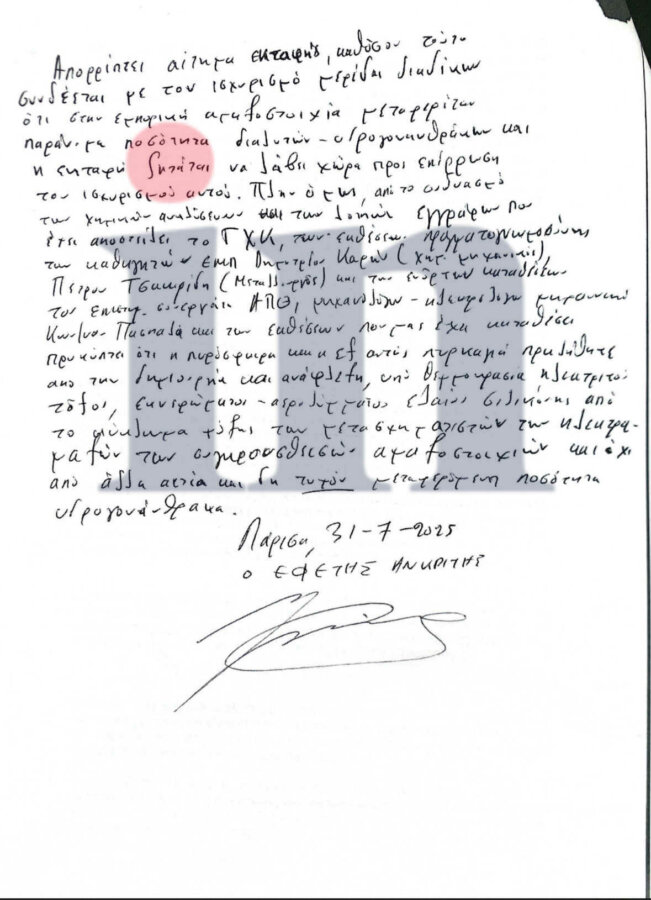 Απορρίπτει αίτημα εκταφής, καθόσον τούτο
συνδέεται με τον ισχυρισμό μερίδας διαδίκων
ότι στην εμπορική αμαξοστοιχία μεταφερόταν
παράνομα ποσότητα διαλυτών - υδρογονανθράκων και
η εκταφή ζητάται να λάβει χώρα προς επίρρωση
του ισχυρισμού αυτού. Πλην όμως, από το συνδυασμό
των χημικών αναλύσεων και των λοιπών εγγράφων που
έχει αποστείλει το ΓΧΚ, των εκθέσεων πραγματογνωμοσύνης
των καθηγητών ΕΜΠ Δημητρίου Καρώνη (χημ. μηχανικός),
Πέτρου Τσακιρίδη (Μεταλλειολόγος) και της ενόρκου καταθέσεως
του επιστημ. συνεργάτη ΑΠΘ, μηχανολόγου - ηλεκτρολόγου μηχανικού
Κων/νου και των εκθέσεων που μας έχει καταθέσει
προκύπτει ότι η πυρόσφαιρα και η εξ αυτής πυρκαγιά προκλήθηκε
από την δημιουργία και ανάφλεξη, υπό θερμοκρασία ηλεκτρικού
τόξου, εκνεφώματος - αερολύματος ελαίου σιλικόνης από
το κύκλωμα ψύξης των μετασχηματιστών των ηλεκτρα-
μαξών των συγκρουσθεισών αμαξοστοιχιών και όχι
από άλλη αιτία και δη τυχόν μεταφερόμενη ποσότητα
υδρογονάνθρακα.
Λάρισα, 31-7-2025
Ο ΕΦΕΤΗΣ ΑΝΑΚΡΙΤΗΣ
in